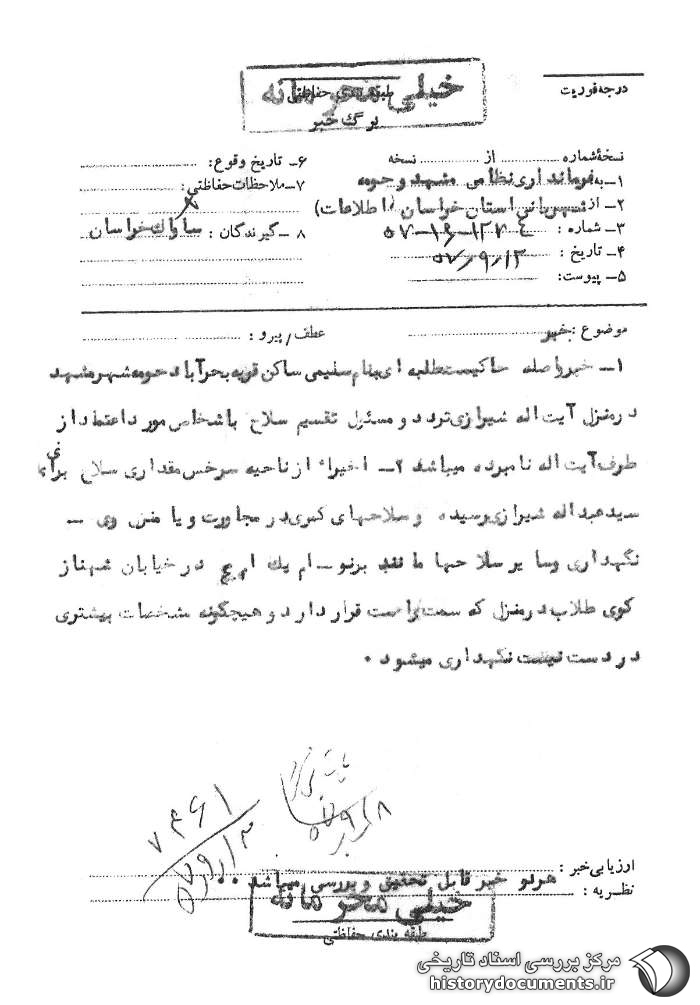 خیلی محرمانه
طبقه بندی حفاظتی
برگ خبر
درجه فوریت
نسخهٔ شماره ........ از ........ نسخه
۱ــ به فرمانداری نظامی مشهد و حومه
۲ــ از شهربانی استان خراسان (اطلاعات)
۳ــ شماره :
۴ــ تاریخ : ۵۷/۹/۱۲
۵ــ پیوست:
۶ــ تاریخ وقوع :
۷ــ ملاحظات حفاظتی:
۸ ــ گیرندگان : ساواک خراسان
موضوع : خبر
عطف/پیرو :
۱ــ خبر واصله حاکیست طلبه ای بنام سلیمی ساکن قریه بحرآباد حومه شهر مشهد
در منزل آیت اله شیرازی تردد و مسئول تقسیم سلاح باشخاص مورد اعتماد از
طرف آیت اله نامبرده میباشد ۲ــ اخیراً از ناحیه سرخس مقداری سلاح برای
سید عبداله شیرازی رسیده و سلاحهای کمری در مجاورت و یا منزل وی ــ
نگهداری وسایر سلاحها مانند برنو ــ ام یک در خیابان شهناز
کوی طلاب در منزل که سمت راست قرار دارد و هیچگونه مشخصات بیشتری
در دست نیست نگهداری میشود ۰
۷۴۶۱
۵۷/۹/۱۲
ارزیابی خبر :
هر دو خبر قابل تحقیق و بررسی میباشد ۰۰
نظریه :
خیلی محرمانه
طبقه بندی حفاظتی
مرکز بررسی اسناد تاریخی
historydocuments.ir